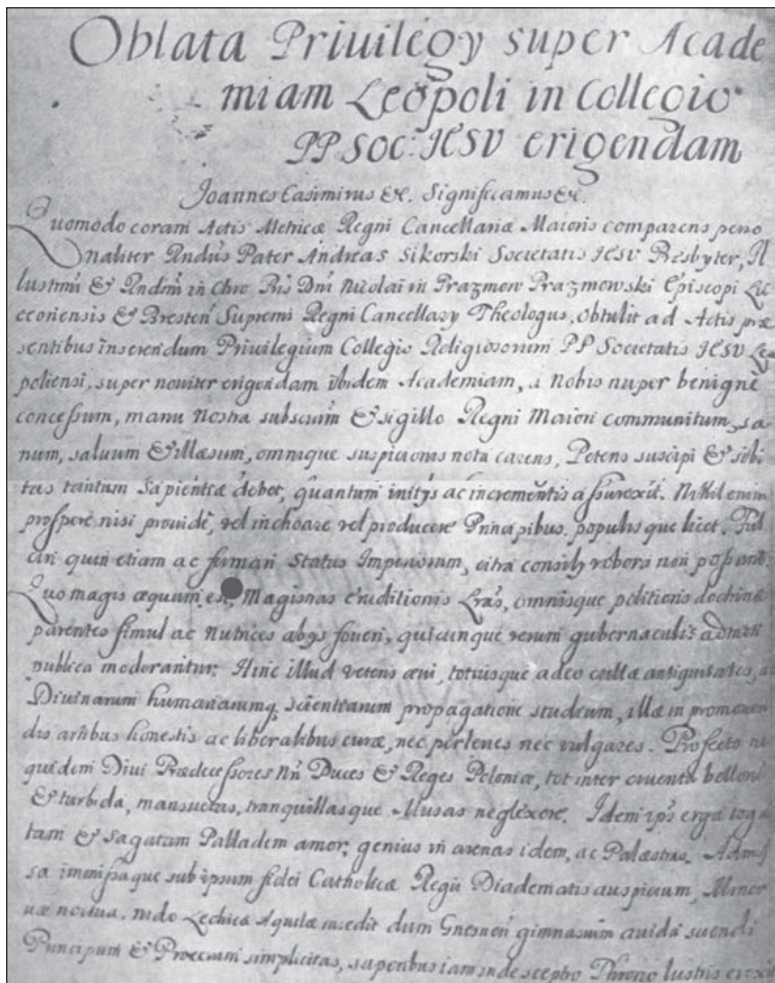 Oblata Priuilegÿ super Acade
miam Leopoli in Collegio
PP SOC: IESV erigendam
Joannes Casimirus &c. Significamus &c.
Quomodo coram Actis Metricæ Regni Cancellariæ Maioris comparens perso
naliter Rndus Pater Andreas Sikorski Societatis IESV Presbyter, Il
lustrimi & Rndmi in Chro Pris Dni Nicolai in Prazmow Prazmowski Episcopi Luc
ceoriensis & Bresten Supremi Regni Cancellarÿ Theologus, obtulit ad Actis præ
sentibus inserendum Priuilegium Collegio Religiosorum PP Societatis IESV Leo
poliensi, super nouiter erigendam ibidem Academiam, a Nobis nuper benigne
concessum, manu Nostra subscrim & sigillo Regni Maiori communitum, sa
num, saluum & illæsum, omnique suspicionis nota carens, Petens suscipi &
tas tantum Sapientiæ debet, quantum initÿs ac incrementis assurexit. Nihil enim
prospere nisi prouide, vel inchoare vel producere Principibus populisque licet.
ciri quin etiam ac firmari Status Imperiorum, citra consilÿ robora non possunt.
Quo magis æquum est, Magistras eruditionis Lras, omnisque politioris doctrinæ
parentes simul ac Nutrices abÿs foueri, quicunque rerum gubernaculis
publica moderantur. Hinc illud veteris æui, totiusque adeo cultæ antiquitatis,
Diuinarum humanarumq, scientiarum propagatione studium, illæ in promouen
dis artibus honestis ac liberalibus curæ, nec perlenes nec vulgares. Profecto ne
quidem Diui Prædecessores Nri Duces & Reges Poloniæ, tot inter cruenta bellorum
& turbida, mansuetas, tranquillasque Musas neglexere. Idem ips erga toga
tam & sagatam Palladem amor, genius in arenas idem, ac Palæstras. Admis
sa immissaque sub ipsum fidei Catholicæ Regii Diadematis auspicium, Miner
uæ noctua. nido Lechicæ Aquilæ insedit dum Gnesnen gimnasium auida
Principum & Procerum simplicitas, saperibus iam inde sceptro Throno lustris